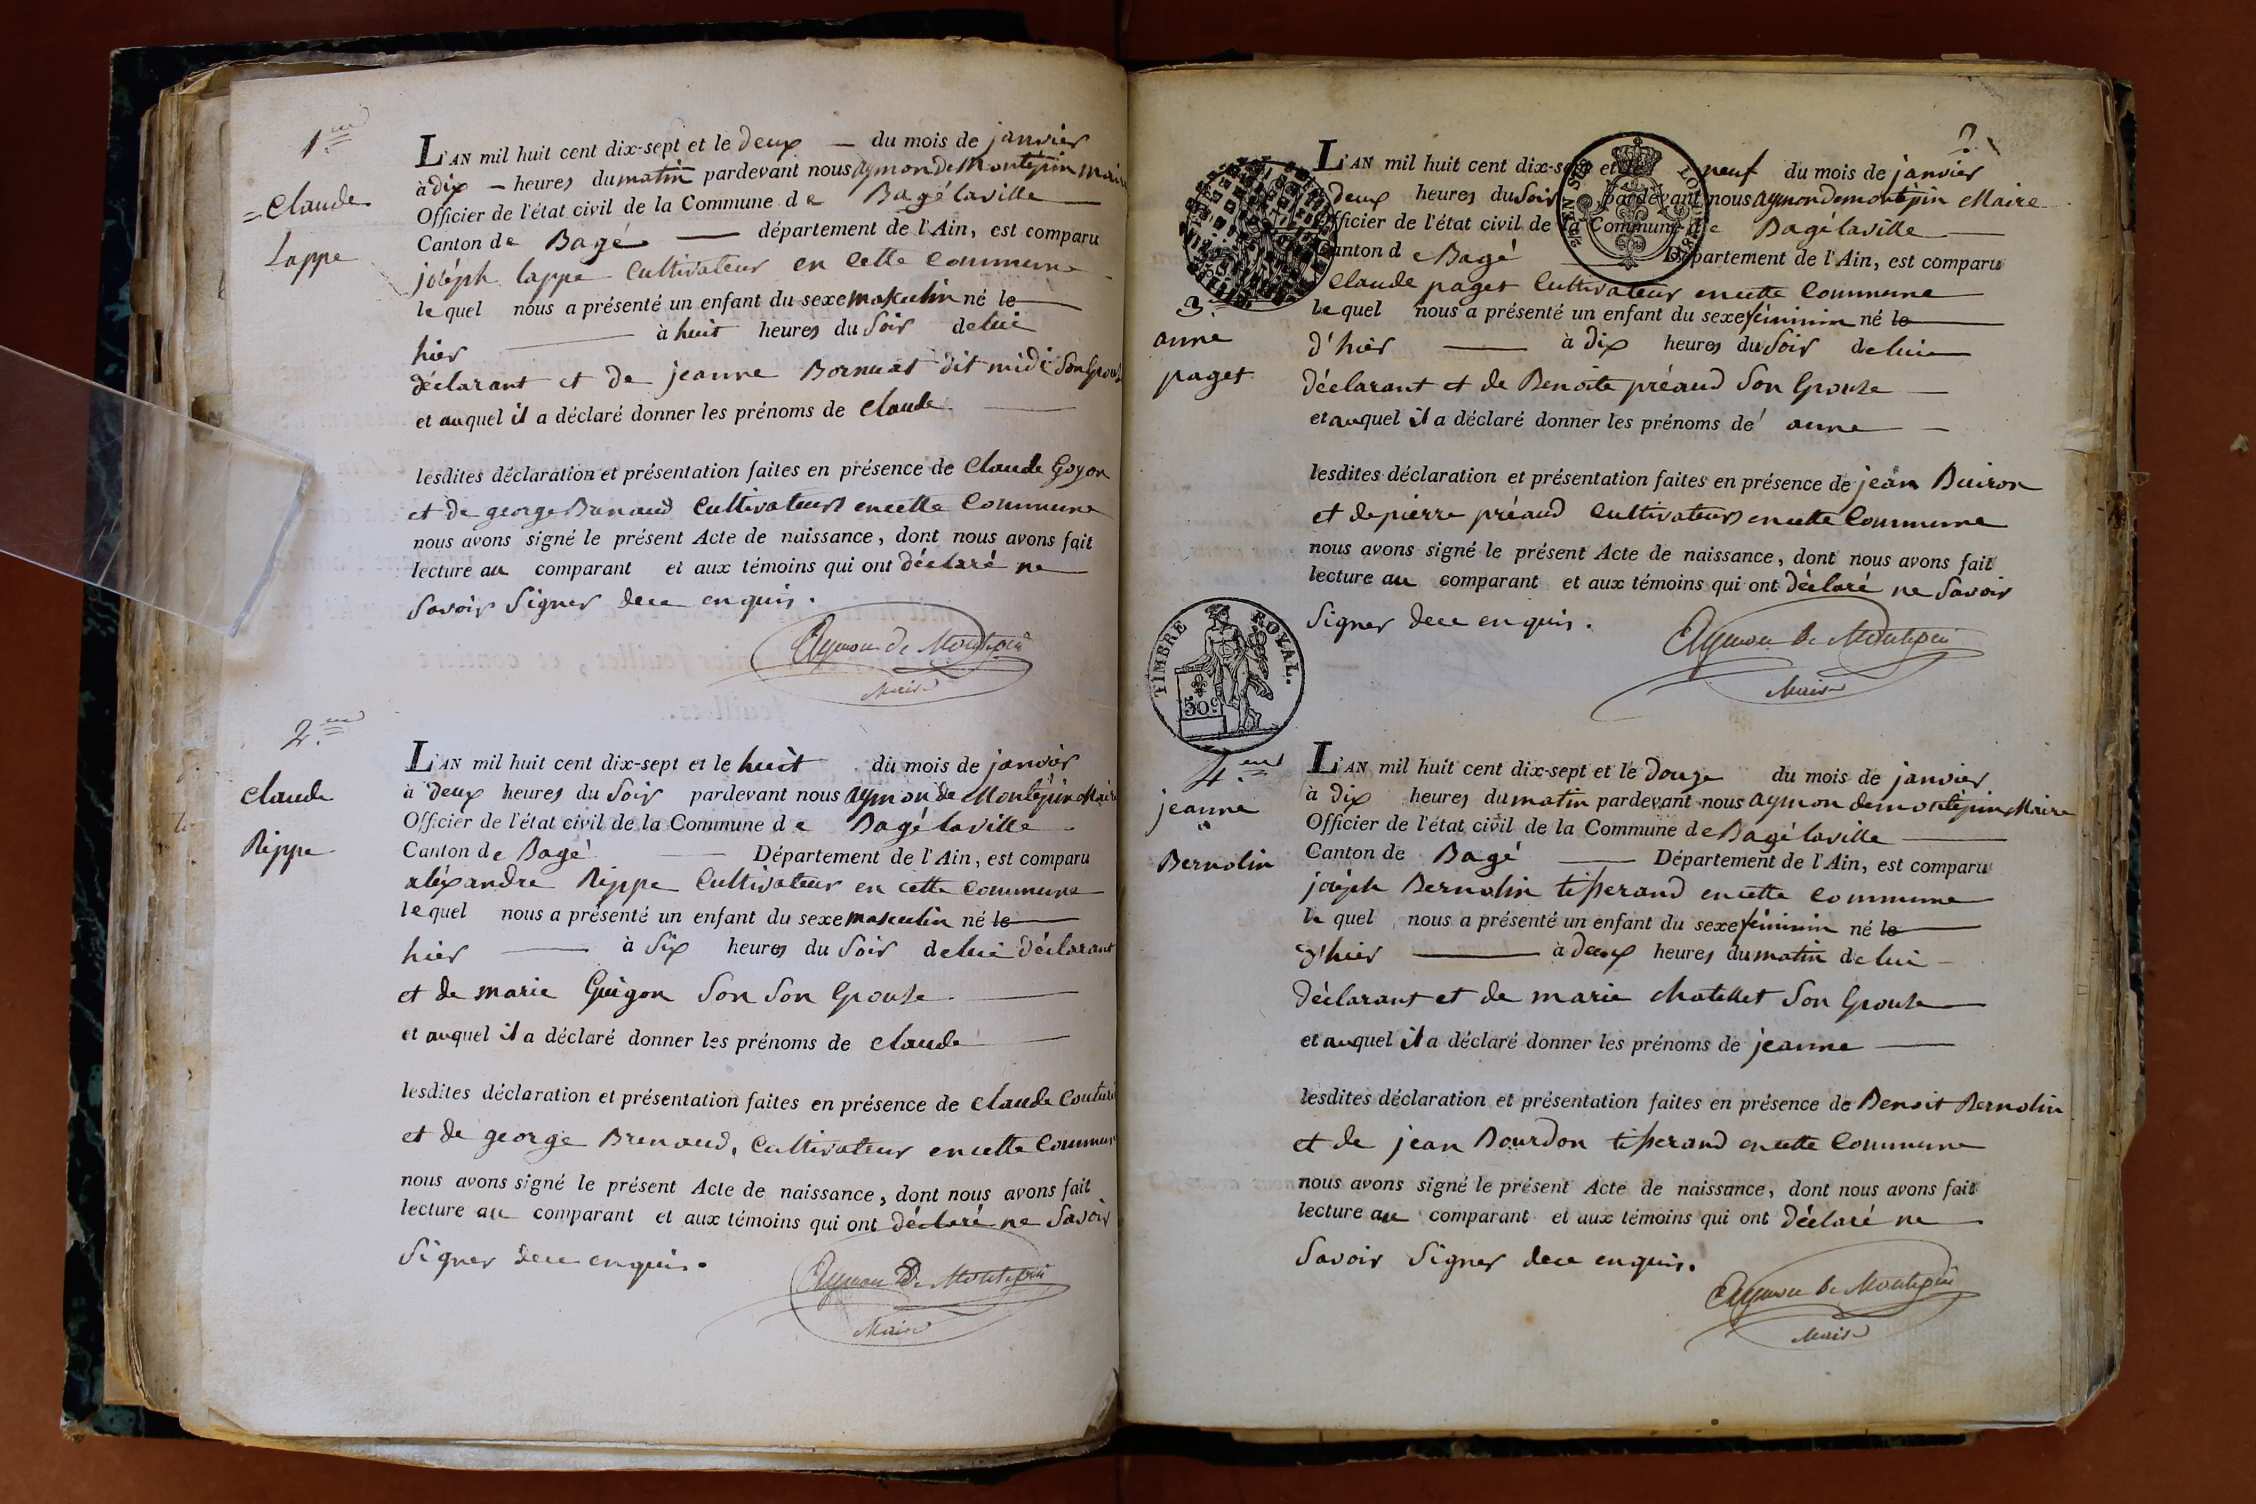 1.ere
Claude
Lappe
L'AN mil huit cent dix-sept et le deux du mois de janvier
à dix heures du matin pardevant nous aymon de Montépin Maire
Officier de l'état civil de la Commune de Bagé laville
Canton de Bagé département de l'Ain, est comparu
joséph lappe Cultivateur en Cette Commune
lequel nous a présenté un enfant du sexe masculin né le
hier à huit heures du soir de lui
déclarant et de jeanne Bornuat dit midi son Epouse
et auquel il a déclaré donner les prénoms de Claude
lesdites déclaration et présentation faites en présence de Claude Goyon
et de george Brunaud Cultivateurs en cette Commune
nous avons signé le présent Acte de naissance, dont nous avons fait
lecture au comparant et aux témoins qui ont déclaré ne
savoir signer de ce enquis.
Aymon de Montepin
Maire
2.
Claude
Rippe
L'AN mil huit cent dix-sept et le huit du mois de janvier
à deux heures du soir pardevant nous aymon de Montépin Maire
Officier de l'état civil de la Commune de Bagé laville
Canton de Bagé Département de l'Ain, est comparu
aléxandre Rippe Cultivateur en cette Commune
lequel nous a présenté un enfant du sexe masculin né le
hier à six heures du soir de lui déclarant
et de marie Guigon son son Epouse
et auquel il a déclaré donner les prénoms de Claude
lesdites déclaration et présentation faites en présence de Claude
et de george Brenaud, Cultivateur en cette Commune
nous avons signé le présent Acte de naissance, dont nous avons fait
lecture au comparant et aux témoins qui ont déclaré ne savoir
signer de ce enquis.
Aymon De Montepin
Maire
2
3.
anne
paget
L'AN mil huit cent dix-sept et le neuf du mois de janvier
deux heures du soir pardevant nous aymon demontépin Maire
Officier de l'état civil de la Commune de Bagé laville
Canton de Bagé Département de l'Ain, est comparu
Claude paget Cultivateur en cette Commune
lequel nous a présenté un enfant du sexe féminin né le
d'hier à dix heures du soir de lui
déclarant et de Benoite préaud son Epouse
et auquel il a déclaré donner les prénoms de anne
lesdites déclaration et présentation faites en présence de jean Buiron
et de pierre préaud Cultivateurs en cette Commune
nous avons signé le présent Acte de naissance, dont nous avons fait
lecture au comparant et aux témoins qui ont déclaré ne savoir
signer de ce enquis.
Aymon de Montepin
Maire
TIMBRE ROYAL.
50c
4.
jeanne
Bernolin
L'AN mil huit cent dix-sept et le douze du mois de janvier
à dix heures du matin pardevant nous aymon demontépin Maire
Officier de l'état civil de la Commune de Bagé laville
Canton de Bagé Département de l'Ain, est comparu
joséph Bernolin tisserand en cette commune
lequel nous a présenté un enfant du sexe féminin né le
d'hier à deux heures du matin de lui
déclarant et de marie chatellet son Epouse
et auquel il a déclaré donner les prénoms de jeanne
lesdites déclaration et présentation faites en présence de Benoit Bernolin
et de jean Bourdon tisserand en cette Commune
nous avons signé le présent Acte de naissance, dont nous avons fait
lecture au comparant et aux témoins qui ont déclaré ne
savoir signer de ce enquis.
Aymon de Montepin
Maire